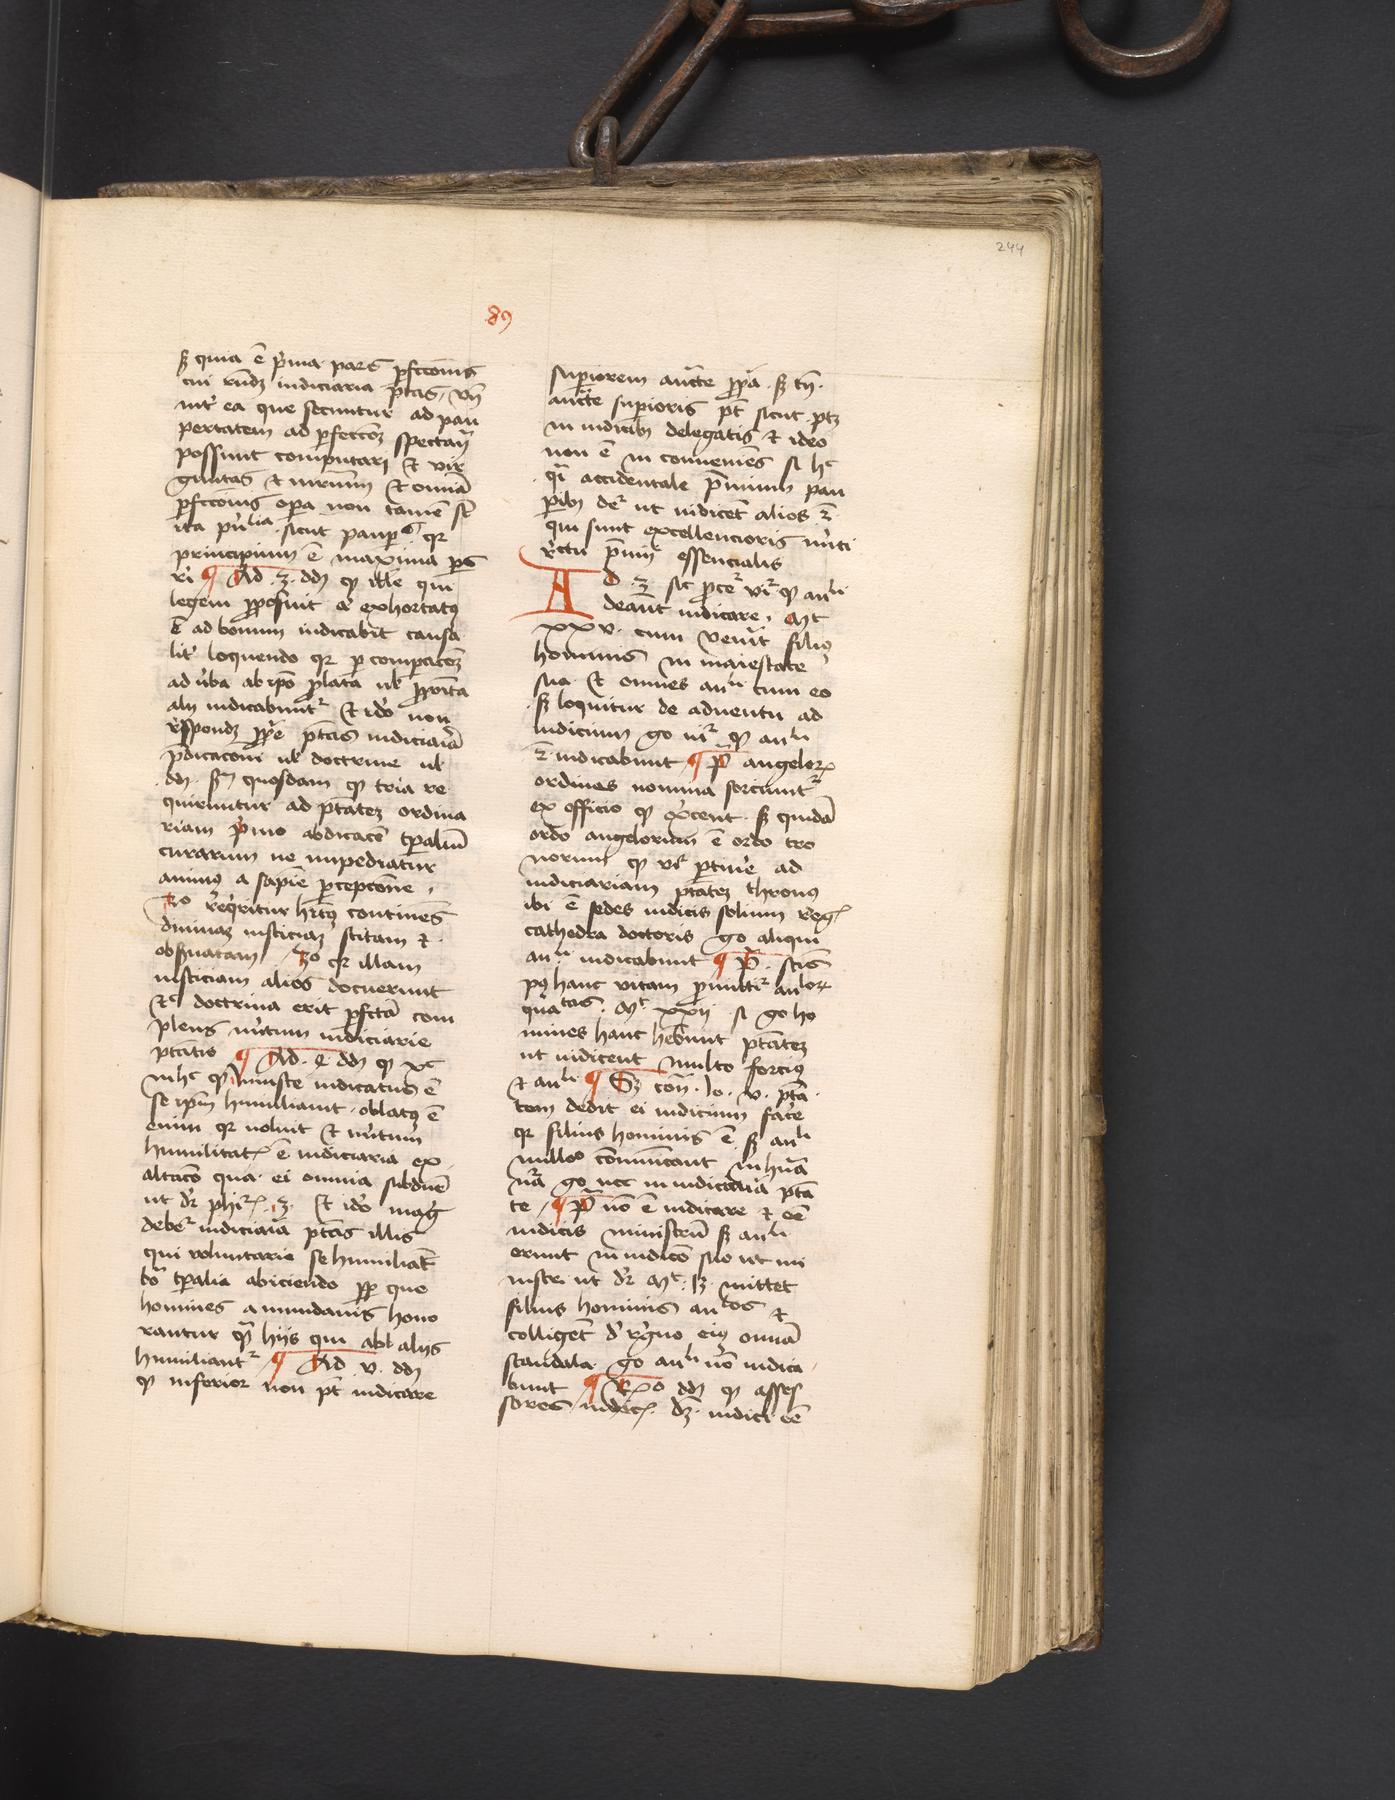 244
89
sz quia ē p̄ima pars pfcōnis
cui rn̄dz iudiciaria ptās, vn̄
int͛ ea que secuntur ad pau
pertatem ad pfectōēz spectan̄
possunt computari et vir
ginitas et mr̄ium et omīa
pfcōnis opa non tamē st̄
ita pn̄lia sicut paupt
principium ē maxima ps
ri ¶ Ad .3. dd̄m qp ille qui
legem pposuit a͛ exhortatꝯ
ē ad bonum iudicabit causa
lit͛ loquendo qr p compacōēz
ad v͛ba ab ipo plata ul pposita
alij iudicabunt͛ Et iō non
respondz ppe ptās iudiciaīa
p̄dicacōni ul doctrine ul
dd̄m. s̄m quosdam qp tria re
quiruntur ad ptātez ordina
riam p̄imo abdicacō tp̄alium
curarum ne impediatur
animꝯ a sapie pcepcōne.
2o req̄ritur hītꝯ continēs
diuinaz iusticiaz scitam et
obs͛uatam 3o qr illam
iusticiam alios docuerunt
Et doctrina erit pfcta com
plens m͛itum iudiciarie
ptātis ¶ Ad .4. dd̄m qp xc
in hc qp iniuste iudicatus ē
se ipm humiliauit. oblatꝯ ē
enim qr uoluit Et m͛itum
humilitat͛ ē iudiciaria ex
altacō qua ei omnia subdūt͛
ut dr phil .3. Et iō mag͛
debet͛ iudiciaia ptās illis
qui voluntarie se humiliāt
bo tp̄alia abiciendo pp que
homines a mundanis hono
rantur qm̄ hijs qui ab alijs
humiliant͛ ¶ Ad v. dd̄m
qp inferior non pt iudicare
superiorem auc̄te pp̄a. sz tn̄.
auc̄te superioris pt sicut ptz
in iudicibꝫ delegatis Et ideo
non ē inconueniēs si hc
q̄i accidentale p̄mium pau
pibꝫ det͛ ut iudicēt alios 2
qui sunt excellencioris m͛iti
rc̄tu p̄mij essencialis
AD .3 sic pcet͛ vr͛ qp an̄li
debeant iudicare. Mt
xxv. cum venerit filiꝯ
hominis in maiestate
sua Et omnes an̄li cum eo
sz loquitur de aduentu ad
iudicium go ur͛ qp an̄li
2 iudicabunt ¶ P̄ angelorꝝ
ordines nomina sorciunt͛
ex officio qp ex͛cent. sz quidā
ordo angelorum ē ordo tro
norum qp vr͛ ptinē ad
iudiciariam ptātez thronꝯ
ibi ē sedes iudicis solium reg͛
cathedra doctoris go aliqui
an̄li iudicabunt ¶ P̄ scis
pꝯ hanc vitam pmittit͛ an̄lorꝝ
eqlitas. Mt xxij si go ho
mines hanc hebūt ptātez
ut iudicent multo forciꝯ
et an̄li ¶ Sz con̄. Io. v. ptā
tem dedit ei iudicium fac͛e
qr filius hominis ē. sz an̄li
nullo cōmunicant in hūā
n̄a go nec in iudiciaria ptā
te / ¶ P̄ no ē iudicare et eē
iudicis ministrū sz an̄li
erunt in iudicō suo ut mi
nistri ut dr Mt. 13. mittet
filius hominis an̄los et
colligēt d͛ regno eiꝯ omnia
scandala. go an̄li nō iudica
bunt ¶ Rxo dd̄m qp asses
sores iudicꝭ. dz. iudici eē